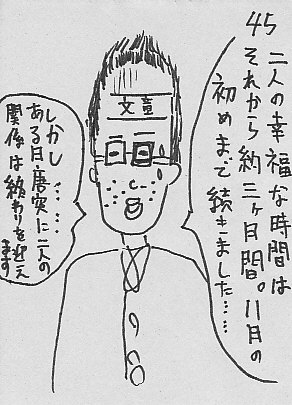 45 二人の幸福な時間は
それから約三ヶ月間。11月の
初めまで続きました……
文章
しかし……
ある日、唐突に二人の
関係は終わりを迎え
ます